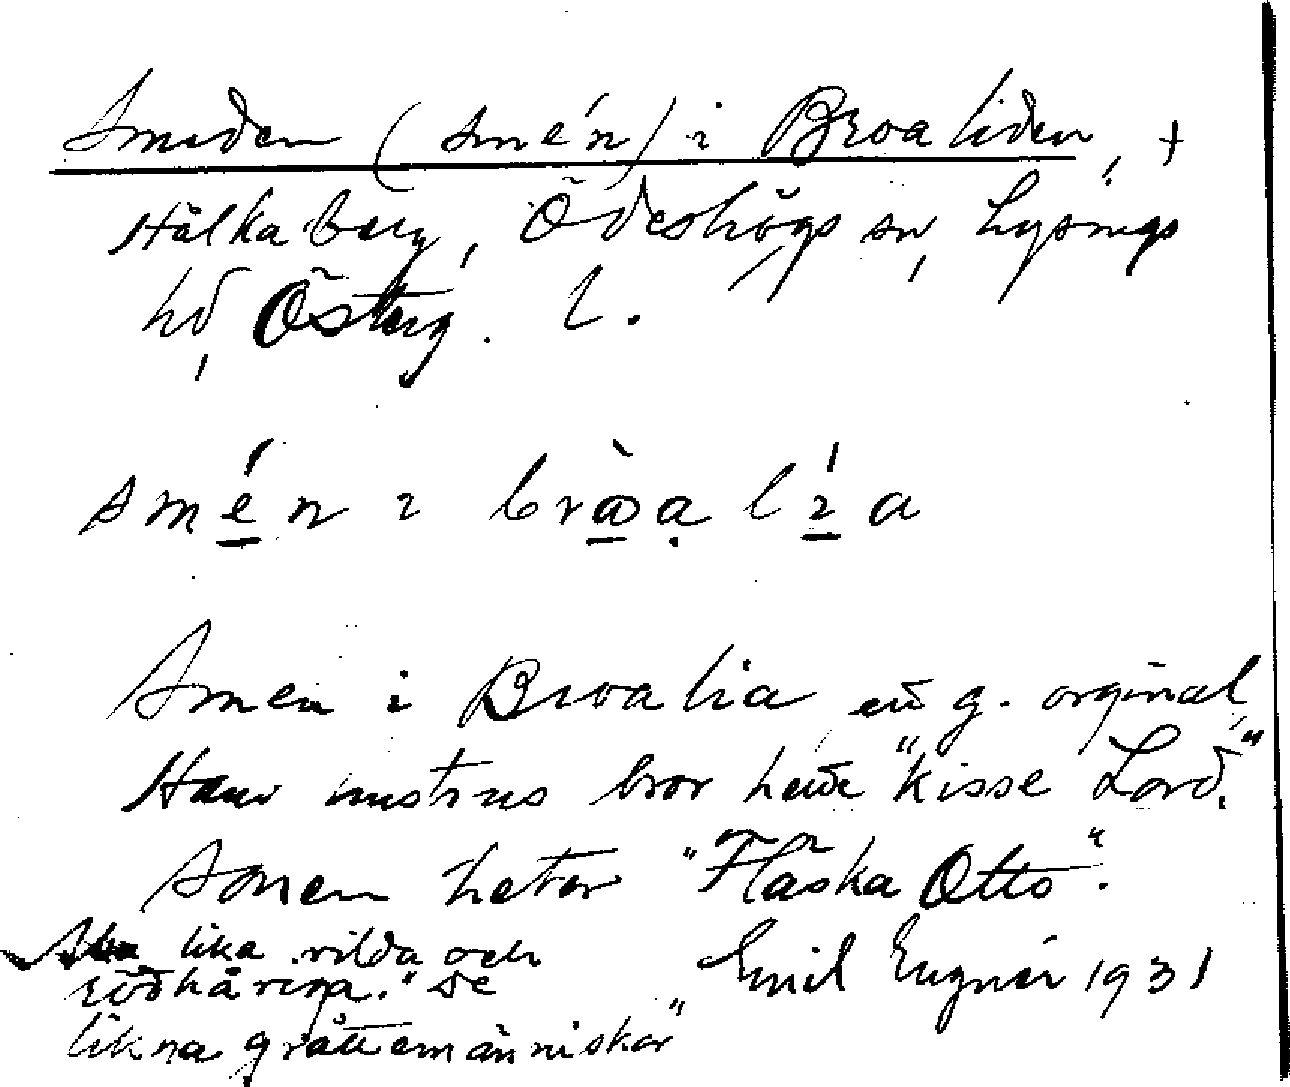 Smeden (smé'n) i Broaliden, +
Hålkaberg, Ödeshögs sn, Lysings
hd, Österg. l.
smén ı bròa̱ạ lı́a
Smen i Broalia ett g. orginal,
Hans hustrus bror hette "Kisse Lord."
Sonen heter "Fläska Otto".
lika vilda och
rödhåriga." De
likna grottemänniskor"
Emil Eugnér 1931